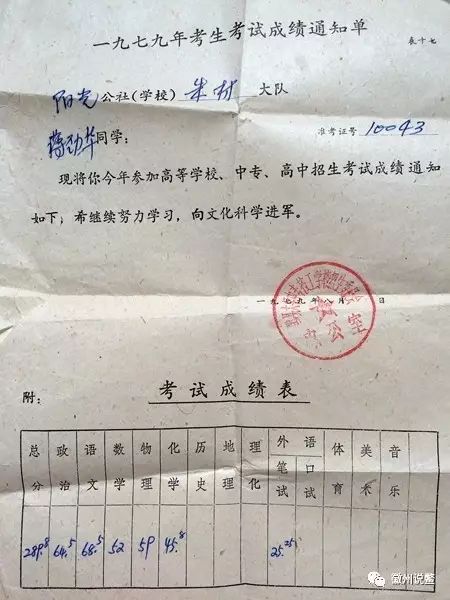 一九七九年考生考试成绩通知单
表十七
阳光公社(学校) 朱村 大队
蒋劲华同学:
准考证号 10043
现将你今年参加高等学校、中专、高中招生考试成绩通知
如下;希继续努力学习,向文化科学进军。
一九七九年八月 日
附: 考试成绩表
总分 政治 语文 数学 物理 化学 历史 地理 理化 外语 体育 美术 音乐
笔试 口试
289.8 64.5 68.5 52 59 45.8 25.25
徽州说鳌